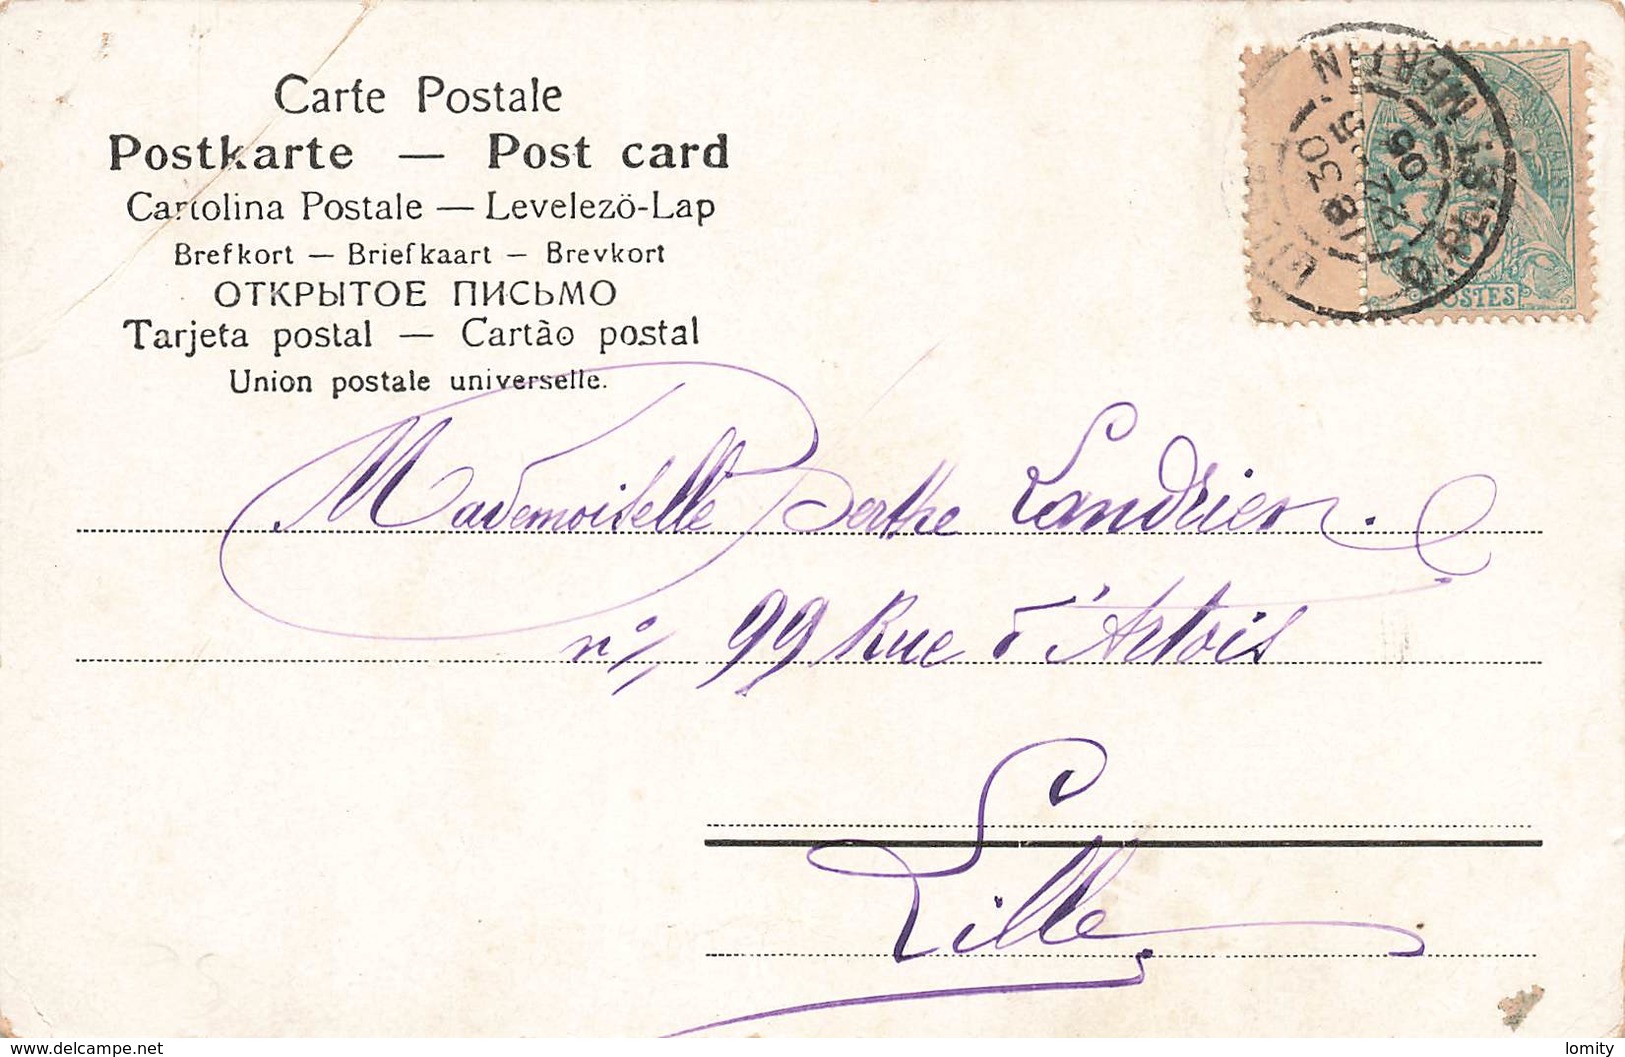 Carte Postale
Postkarte — Post card
Cartolina Postale — Levelezö-Lap
Brefkort — Briefkaart — Brevkort
ОТКРЫТОЕ ПИСЬМО
Tarjeta postal — Cartào postal
Union postale universelle.
MARTIN
8 30
05
POSTES
Mademoiselle Berthe Landrien.
n° 99 Rue d'Artois
Lille
www.delcampe.net
lomity